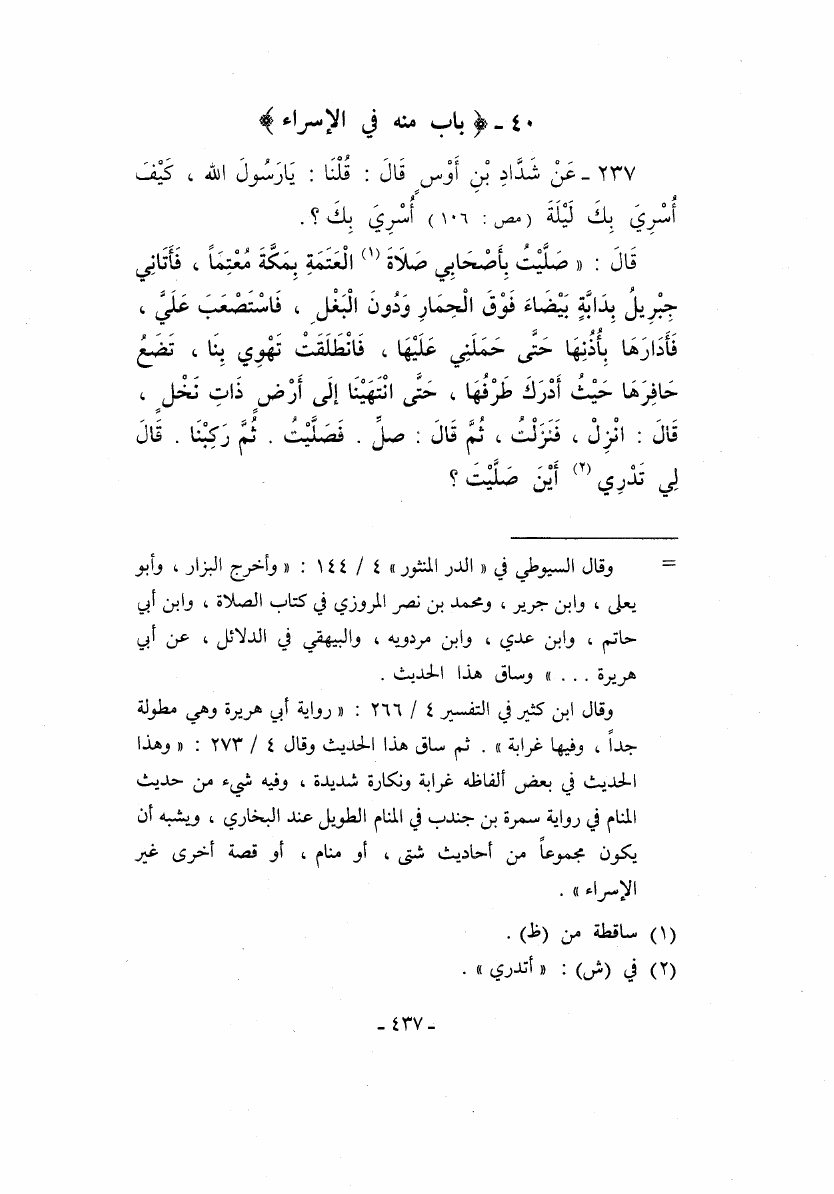 ٤٠ - ﴿ باب منه في الإسراء ﴾
٢٣٧ - عَنْ شَدَّادِ بْنِ أَوْسٍ قَالَ : قُلْنَا : يَارَسُولَ الله ، كَيْفَ
أُسْرِيَ بِكَ لَيْلَةَ ( مص : ١٠٦ ) أُسْرِيَ بِكَ ؟ .
قَالَ : « صَلَّيْتُ بِأَصْحَابِي صَلَاةَ (١) الْعَتَمَةِ بِمَكَّةَ مُعْتِماً ، فَأَتَانِي
جِبْرِيلُ بِدَابَّةٍ بَيْضَاءَ فَوْقَ الْحِمَارِ وَدُونَ الْبَغْلِ ، فَاسْتَصْعَبَ عَلَيَّ ،
فَأَدَارَهَا بِأُذُنِهَا حَتَّى حَمَلَنِي عَلَيْهَا ، فَانْطَلَقَتْ تَهْوِي بِنَا ، تَضَعُ
حَافِرَهَا حَيْثُ أَدْرَكَ طَرْفُهَا ، حَتَّى انْتَهَيْنَا إلَى أَرْضٍ ذَاتِ نَخْلٍ ،
قَالَ : انْزِلْ ، فَنَزَلْتُ ، ثُمَّ قَالَ : صلِّ . فَصَلَّيْتُ . ثُمَّ رَكِبْنَا . قَالَ
لِي تَدْرِي (٢) أَيْنَ صَلَّيْتَ ؟
= وقال السيوطي في « الدر المنثور » ٤ / ١٤٤ : « وأخرج البزار ، وأبو
يعلى ، وابن جرير ، ومحمد بن نصر المروزي في كتاب الصلاة ، وابن أبي
حاتم ، وابن عدي ، وابن مردويه ، والبيهقي في الدلائل ، عن أبي
هريرة ... » وساق هذا الحديث .
وقال ابن كثير في التفسير ٤ / ٢٦٦ : « رواية أبي هريرة وهي مطولة
جداً ، وفيها غرابة » . ثم ساق هذا الحديث وقال ٤ / ٢٧٣ : « وهذا
الحديث في بعض ألفاظه غرابة ونكارة شديدة ، وفيه شيء من حديث
المنام في رواية سمرة بن جندب في المنام الطويل عند البخاري ، ويشبه أن
يكون مجموعاً من أحاديث شتى ، أو منام ، أو قصة أخرى غير
الإسراء » .
(١) ساقطة من (ظ) .
(٢) في (ش) : « أتدري » .
- ٤٣٧ -